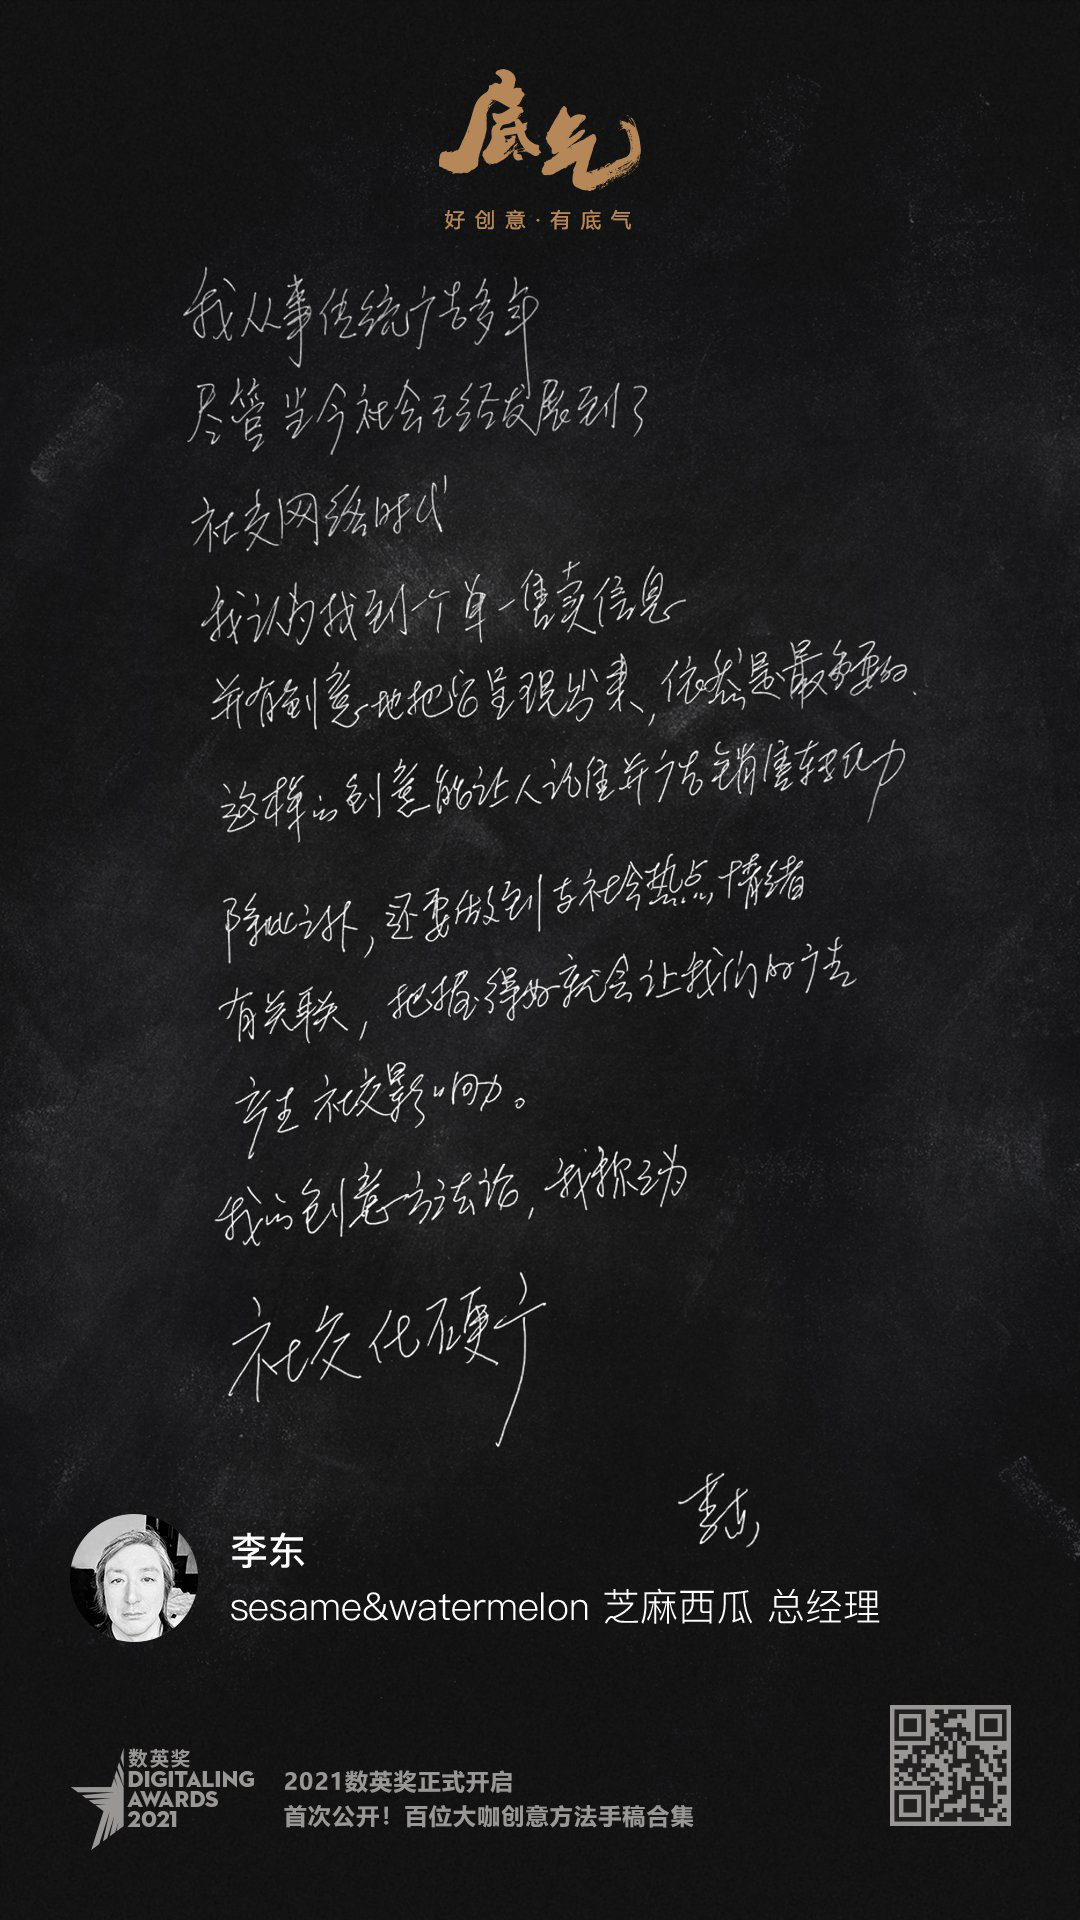 底气
好创意·有底气
我从事传统广告多年
尽管当今社会已经发展到了
社交网络时代
我认为找到一个单一售卖信息
并有创意地把它呈现出来，依然是最重要的.
这样的创意能让人记住并广告销售转化力
除此之外，还要做到与社会热点情绪
有关联，把握得好就会让我们的广告
产生社交影响力。
我的创意方法论，我称之为
社交化硬广
李东
李东
sesame&watermelon 芝麻西瓜 总经理
数英奖
DIGITALING
AWARDS
2021
2021数英奖正式开启
首次公开！百位大咖创意方法手稿合集